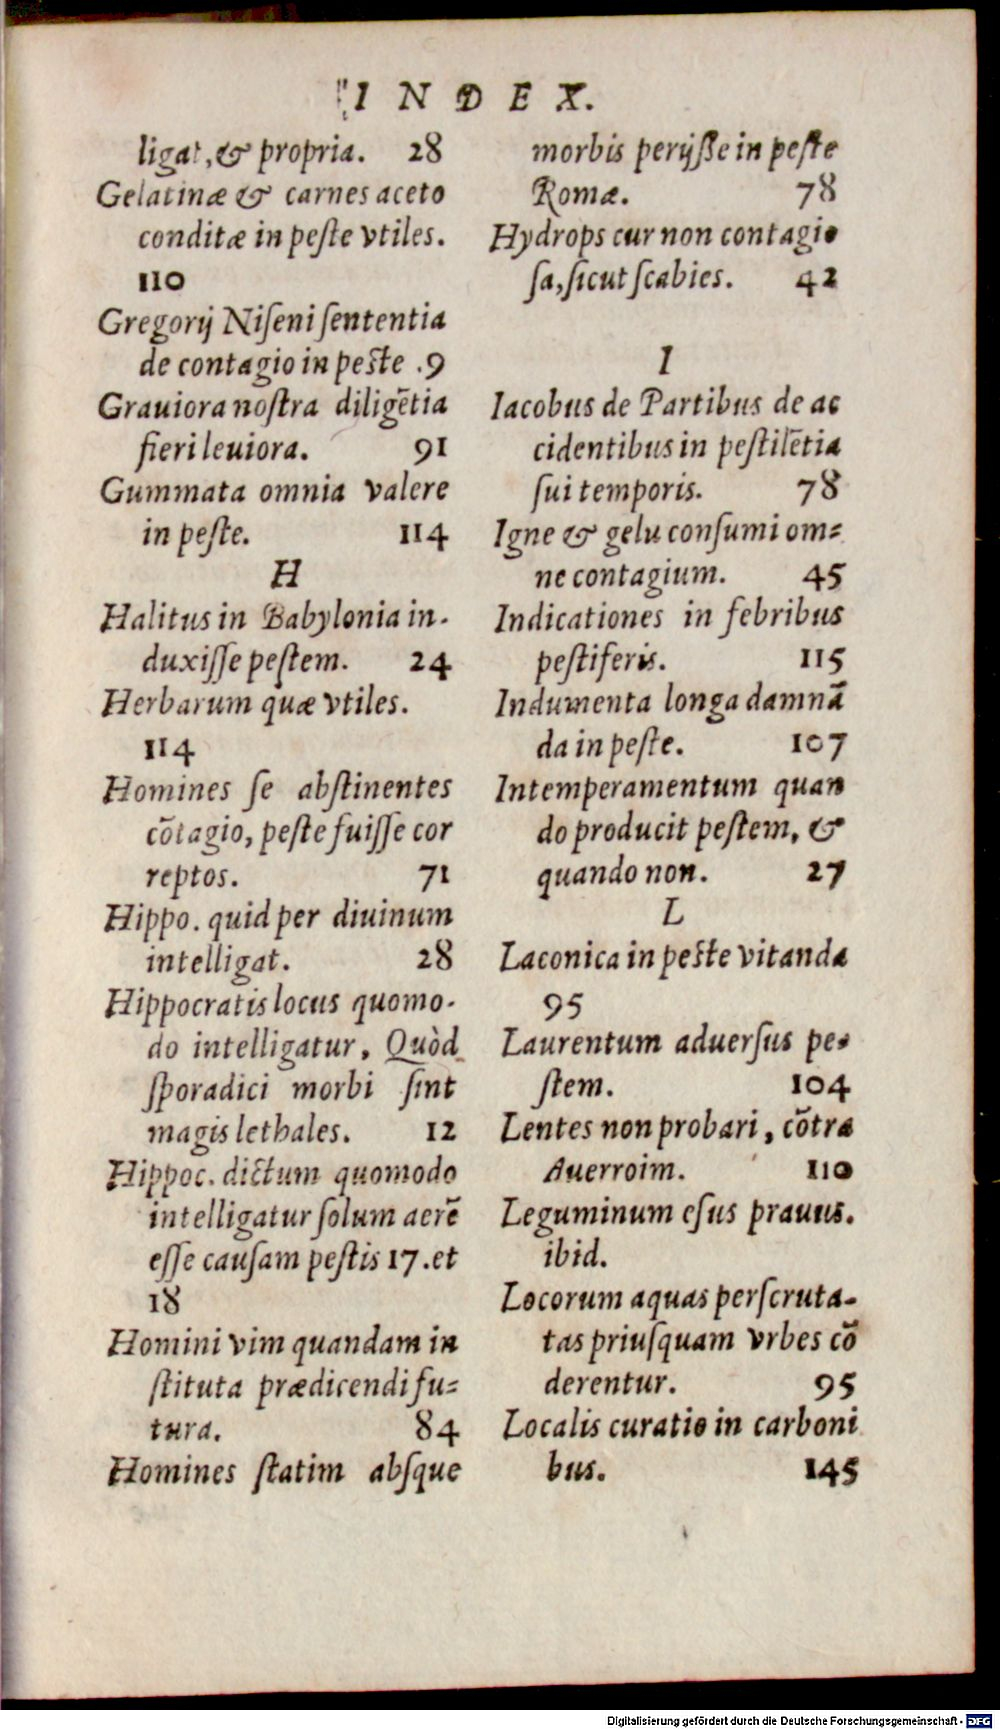 INDEX.
ligat, & propria. 28
Gelatinæ & carnes aceto
conditæ in peſte vtiles.
110
Gregorij Niſeni ſententia
de contagio in peſte .9
Grauiora noſtra diligẽtia
fieri leuiora. 91
Gummata omnia valere
in peſte. 114
H
Halitus in Babylonia in-
duxiſſe peſtem. 24
Herbarum quæ vtiles.
114
Homines ſe abſtinentes
cõtagio, peſte fuiſſe cor
reptos. 71
Hippo. quid per diuinum
intelligat. 28
Hippocratis locus quomo-
do intelligatur, Quòd
ſporadici morbi ſint
magis lethales. 12
Hippoc. dictum quomodo
intelligatur ſolum aerẽ
eſſe cauſam peſtis 17. et
18
Homini vim quandam in
ſtituta prædicendi fu-
tura. 84
Homines ſtatim abſque
morbis perijſſe in peſte
Romæ. 78
Hydrops cur non contagio
ſa, ſicut ſcabies. 42
I
Iacobus de Partibus de ac
cidentibus in peſtilẽtia
ſui temporis. 78
Igne & gelu conſumi om-
ne contagium. 45
Indicationes in febribus
peſtiferis. 115
Indumenta longa damnã
da in peſte. 107
Intemperamentum quan
do producit peſtem, &
quando non. 27
L
Laconica in peſte vitanda
95
Laurentum aduerſus pe-
ſtem. 104
Lentes non probari, cõtra
Auerroim. 110
Leguminum eſus prauus.
ibid.
Locorum aquas perſcruta-
tas priuſquam vrbes cõ
derentur. 95
Localis curatio in carboni
bus. 145
Digitalisierung gefördert durch die Deutsche Forschungsgemeinschaft - DFG